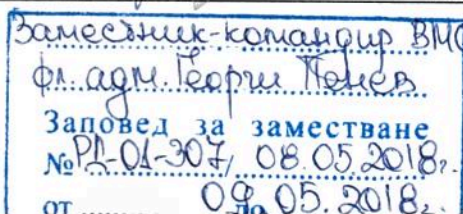 Заместник-командир ВМС
фл. адм. Георги Пенев
Заповед за заместване
№ РД-01-307/ 08.05.2018г.
от ........ 09.05.2018г.